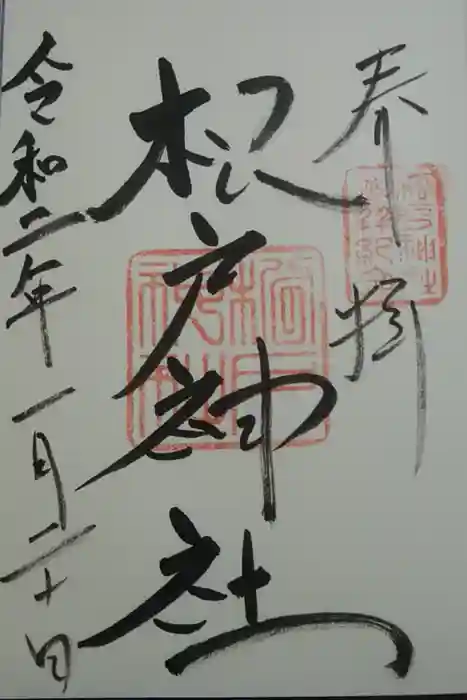 奉拝
根戸神社
令和二年一月二十日